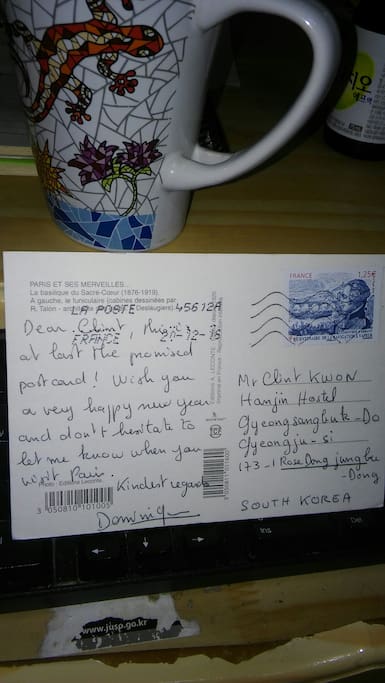 지오
PARIS ET SES MERVEILLES...
La basilique du Sacré-Cœur (1876-1919).
A gauche, le funiculaire (cabines dessinées par
R. Talon -
LA POSTE 45612A
FRANCE 20-12-16
Dear Clint, this is
at last the promised
postcard! Wish you
a very happy new year
and don't hesitate to
let me know when you
visit Paris.
Kindest regards
Dominique
Photo : Editions Leconte
3 050810 101005
3 050810 101005
FRANCE 1,25€
Mr Clint KWON
Hanjin Hostel
Gyeongsangbuk-Do
Gyeongju-si
173-1 Rose Dong jungbu
-Dong
SOUTH KOREA
Ins
Del
←
↓
→
www.jusp.go.kr